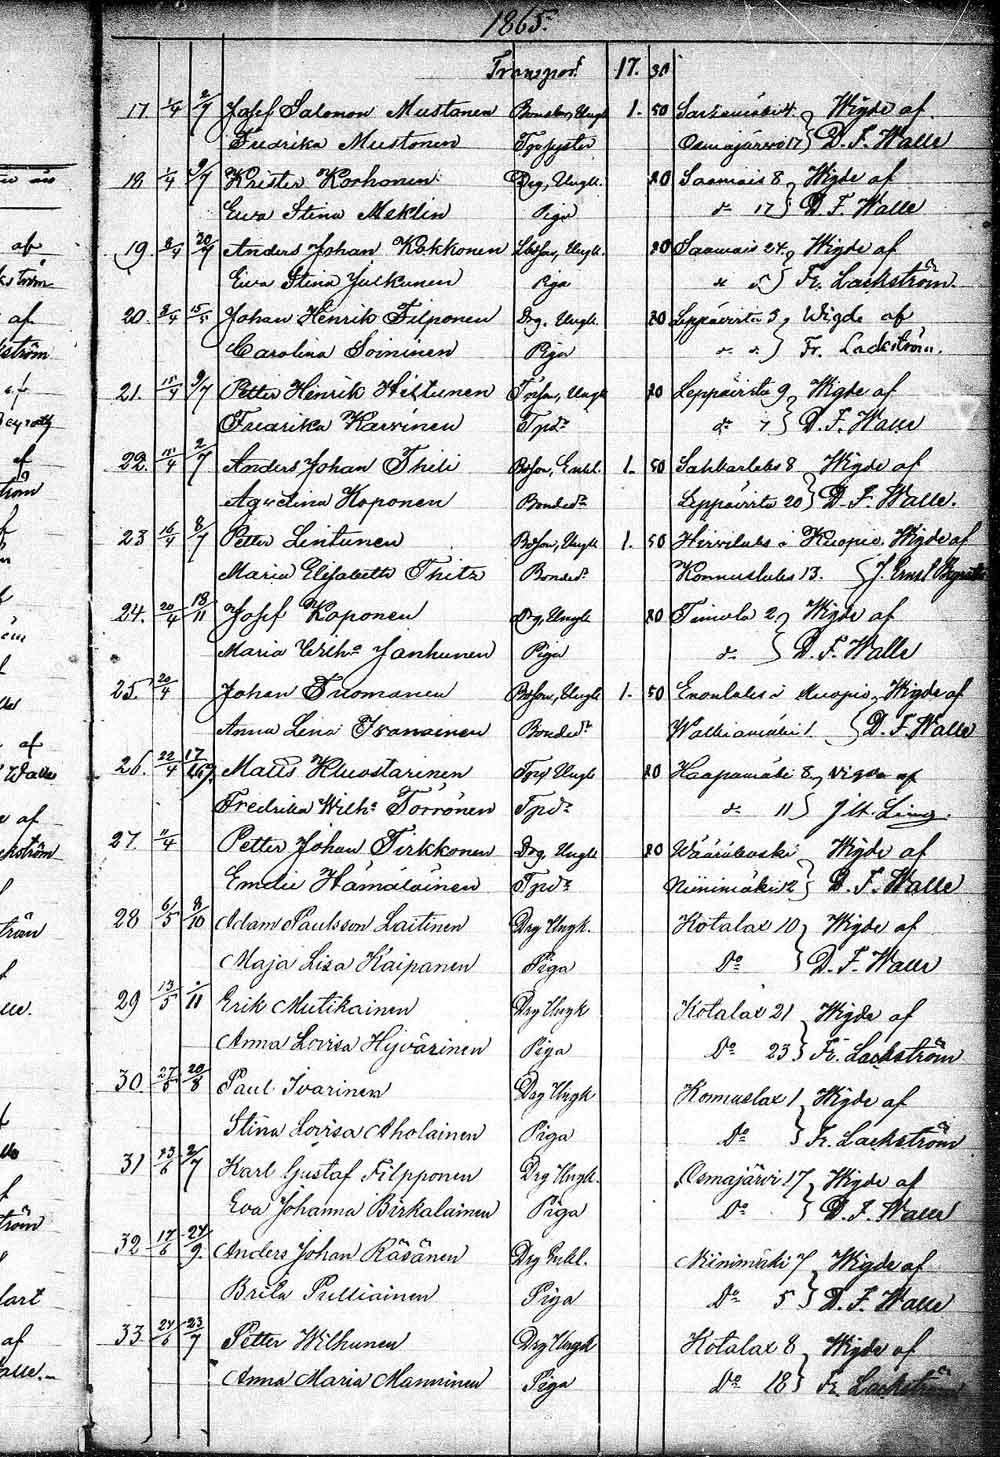 1865.
Transport 17. 30
17 1/4 2/7 Josef Salomon Mustonen Bondes, Ungk 1. 50 4 Wigde af
Fredrika Mustonen Osmajärvi 17 D. F. Walle
18 1/4 9/7 Krister Korhonen Drg, Ungk. 20 Saamais 8 Wigde af
Ewa Stina Meklin Piga do 17 D. F. Walle
19. 8/4 30/7 Anders Johan Kokkonen Ungk. 20 Saamais 24 Wigde af
Ewa Stina Julkunen Piga do 5 Fr. Lackström.
20. 8/4 15/5 Johan Henrik Filponen Drg. Ungk. 20 Leppävirta 3 Wigde af
Carolina Soininen Piga do do Fr. Lackström.
21. 15/4 9/7 Petter Henrik Hiltunen Ungk 20 Leppävirta 9 Wigde af
Fredrika Karvinen Tpdr do 7 D. F. Walle
22. 15/4 2/7 Anders Johan Thili Enkl. 1. 50 Sahkarlaks 8 Wigde af
Agvelina Koponen Bondedr Leppävirta 20 D. F. Walle.
23 16/4 8/7 Petter Lintunen Ungk 1. 50 Hirvilaks i Kuopio, Wigde af
Maria Elisabeth Thitz Bondedr Konnuslaks 13. J. Ernst
24. 20/4 18/11 Josef Koponen Drg, Ungk 20 Timola 2 Wigde af
Maria Wilha Janhunen Piga do D. F. Walle
25. 20/4 Johan Tuomanen Ungk 1. 50 Enonlaks i Kuopio, Wigde af
Anna Lena Ivanainen Bondedr 1. D. F. Walle
26. 22/4 17/ Matts Kluostarinen Torp Ungk 20 Haapamäki 8 Wigde af
Fredrika Wilha Torrönen Tpdr do 11
27. 11/4 Petter Johan Tirkkonen Drg. Ungk 20 Wäärälkoski Wigde af
Emelie Hämäläinen Tpdr Niinimäki 12 D. F. Walle
28 6/5 8/10 Adam Paulsson Laitinen Drg Ungk. Kotalax 10 Wigde af
Maja Lisa Kaipanen Piga Do D. F. Walle
29 13/5 /11 Erik Mutikainen Drg Ungk Kotalax 21 Wigde af
Anna Lovisa Hyvärinen Piga Do 23 Fr. Lackström
30. 27/5 20/8 Paul Ivarinen Drg Ungk Konnuslax 1 Wigde af
Stina Lovisa Aholainen Piga Do Fr. Lackström
31 13/6 2/7 Karl Gustaf Filpponen Drg Ungk. Osmajärvi 17 Wigde af
Eva Johanna Birkalainen Piga Do D. F. Walle
32 17/6 24/9. Anders Johan Räsänen Drg Enkl. Niinimäki 7 Wigde af
Brita Pulliainen Piga Do 5 D. F. Walle
33. 24/6 23/7 Petter Wilhunen Drg Ungk Kotalax 8 Wigde af
Anna Maria Manninen Piga Do 18 Fr. Lackström